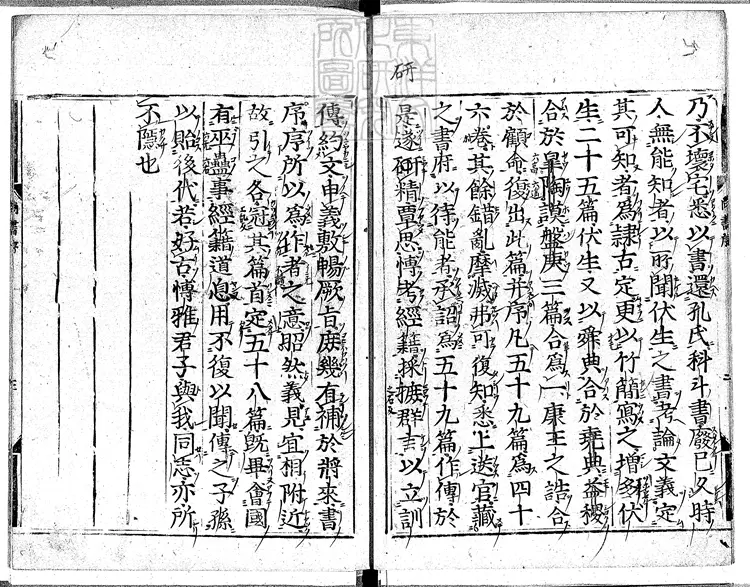 研
乃不壞宅悉以書還孔氏科斗書廢已久時
人無能知者以所聞伏生之書考論文義定
其可知者為隸古定更以竹簡寫之增多伏
生二十五篇伏生又以舜典合於堯典益稷
合於皐陶謨盤庚三篇合為一康王之誥合
於顧命復出此篇并序凡五十九篇為四十
六卷其餘錯亂摩滅弗可復知悉上送官藏
之書府以待能者承詔為五十九篇作傳於
是遂研精覃思愽考經籍採摭群言以立訓
傳約文申義敷暢厥旨庶幾有補於將來書
序序所以為作者之意昭然義見宜相附近
故引之各冠其篇首定五十八篇旣畢會國
有巫蠱事經籍道息用不復以聞傳之子孫
以貽後代若好古愽雅君子與我同志亦所
不隱也